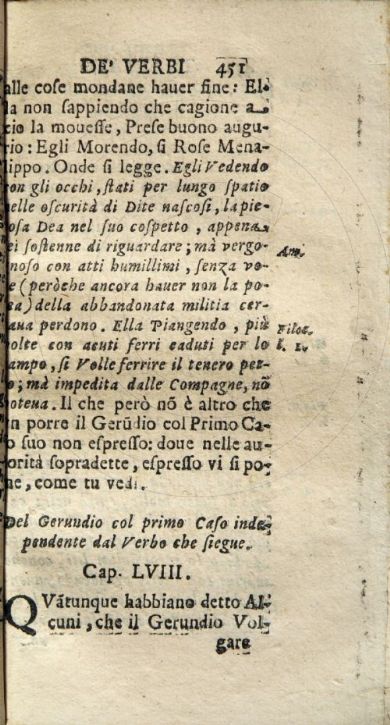 DE' VERBI 451
alle cose mondane hauer fine: El-
la non sappiendo che cagione a
ciò la mouesse, Prese buono augu-
rio: Egli Morendo, si Rose Mena-
lippo. Onde si legge. Egli Vedendo
con gli occhi, stati per lungo spatio
nelle oscurità di Dite nascosi, la pie-
tosa Dea nel suo cospetto, appena
ei sostenne di riguardare; mà vergo-
gnoso con atti humillimi, senza vo-
ce (peròche ancora hauer non la po-
tea) della abbandonata militia cer-
caua perdono. Ella Piangendo, più
volte con acuti ferri caduti per lo
campo, si Volle ferrire il tenero pet-
to; mà impedita dalle Compagne, nõ
poteua. Il che però nõ è altro che
un porre il Gerũdio col Primo Ca-
so suo non espresso: doue nelle au-
torità sopradette, espresso vi si po-
ne, come tu vedi.
Am.
Filoc.
l. 1.
Del Gerundio col primo Caso inde-
pendente dal Verbo che siegue.
Cap. LVIII.
QVãtunque habbiano detto Al-
cuni, che il Gerundio Vol-
gare